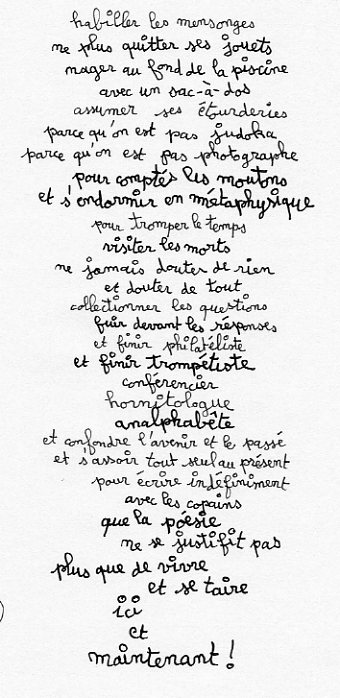 habiller les mensonges
ne plus quitter ses jouets
nager au fond de la piscine
avec un sac-à-dos
assumer ses étourderies
parce qu'on est pas judoka
parce qu'on est pas photographe
pour comptés les moutons
et s'endormir en métaphysique
pour tromper le temps
visiter les morts
ne jamais douter de rien
et douter de tout
collectionner les questions
fuir devant les réponses
et finir philatéliste
et finir trompétiste
conférencier
hornitologue
analphabête
et confondre l'avenir et le passé
et s'assoir tout seul au présent
pour écrire indéfiniment
avec les copains
que la poésie
ne se justifit pas
plus que de vivre
et se taire
ici
et
maintenant !